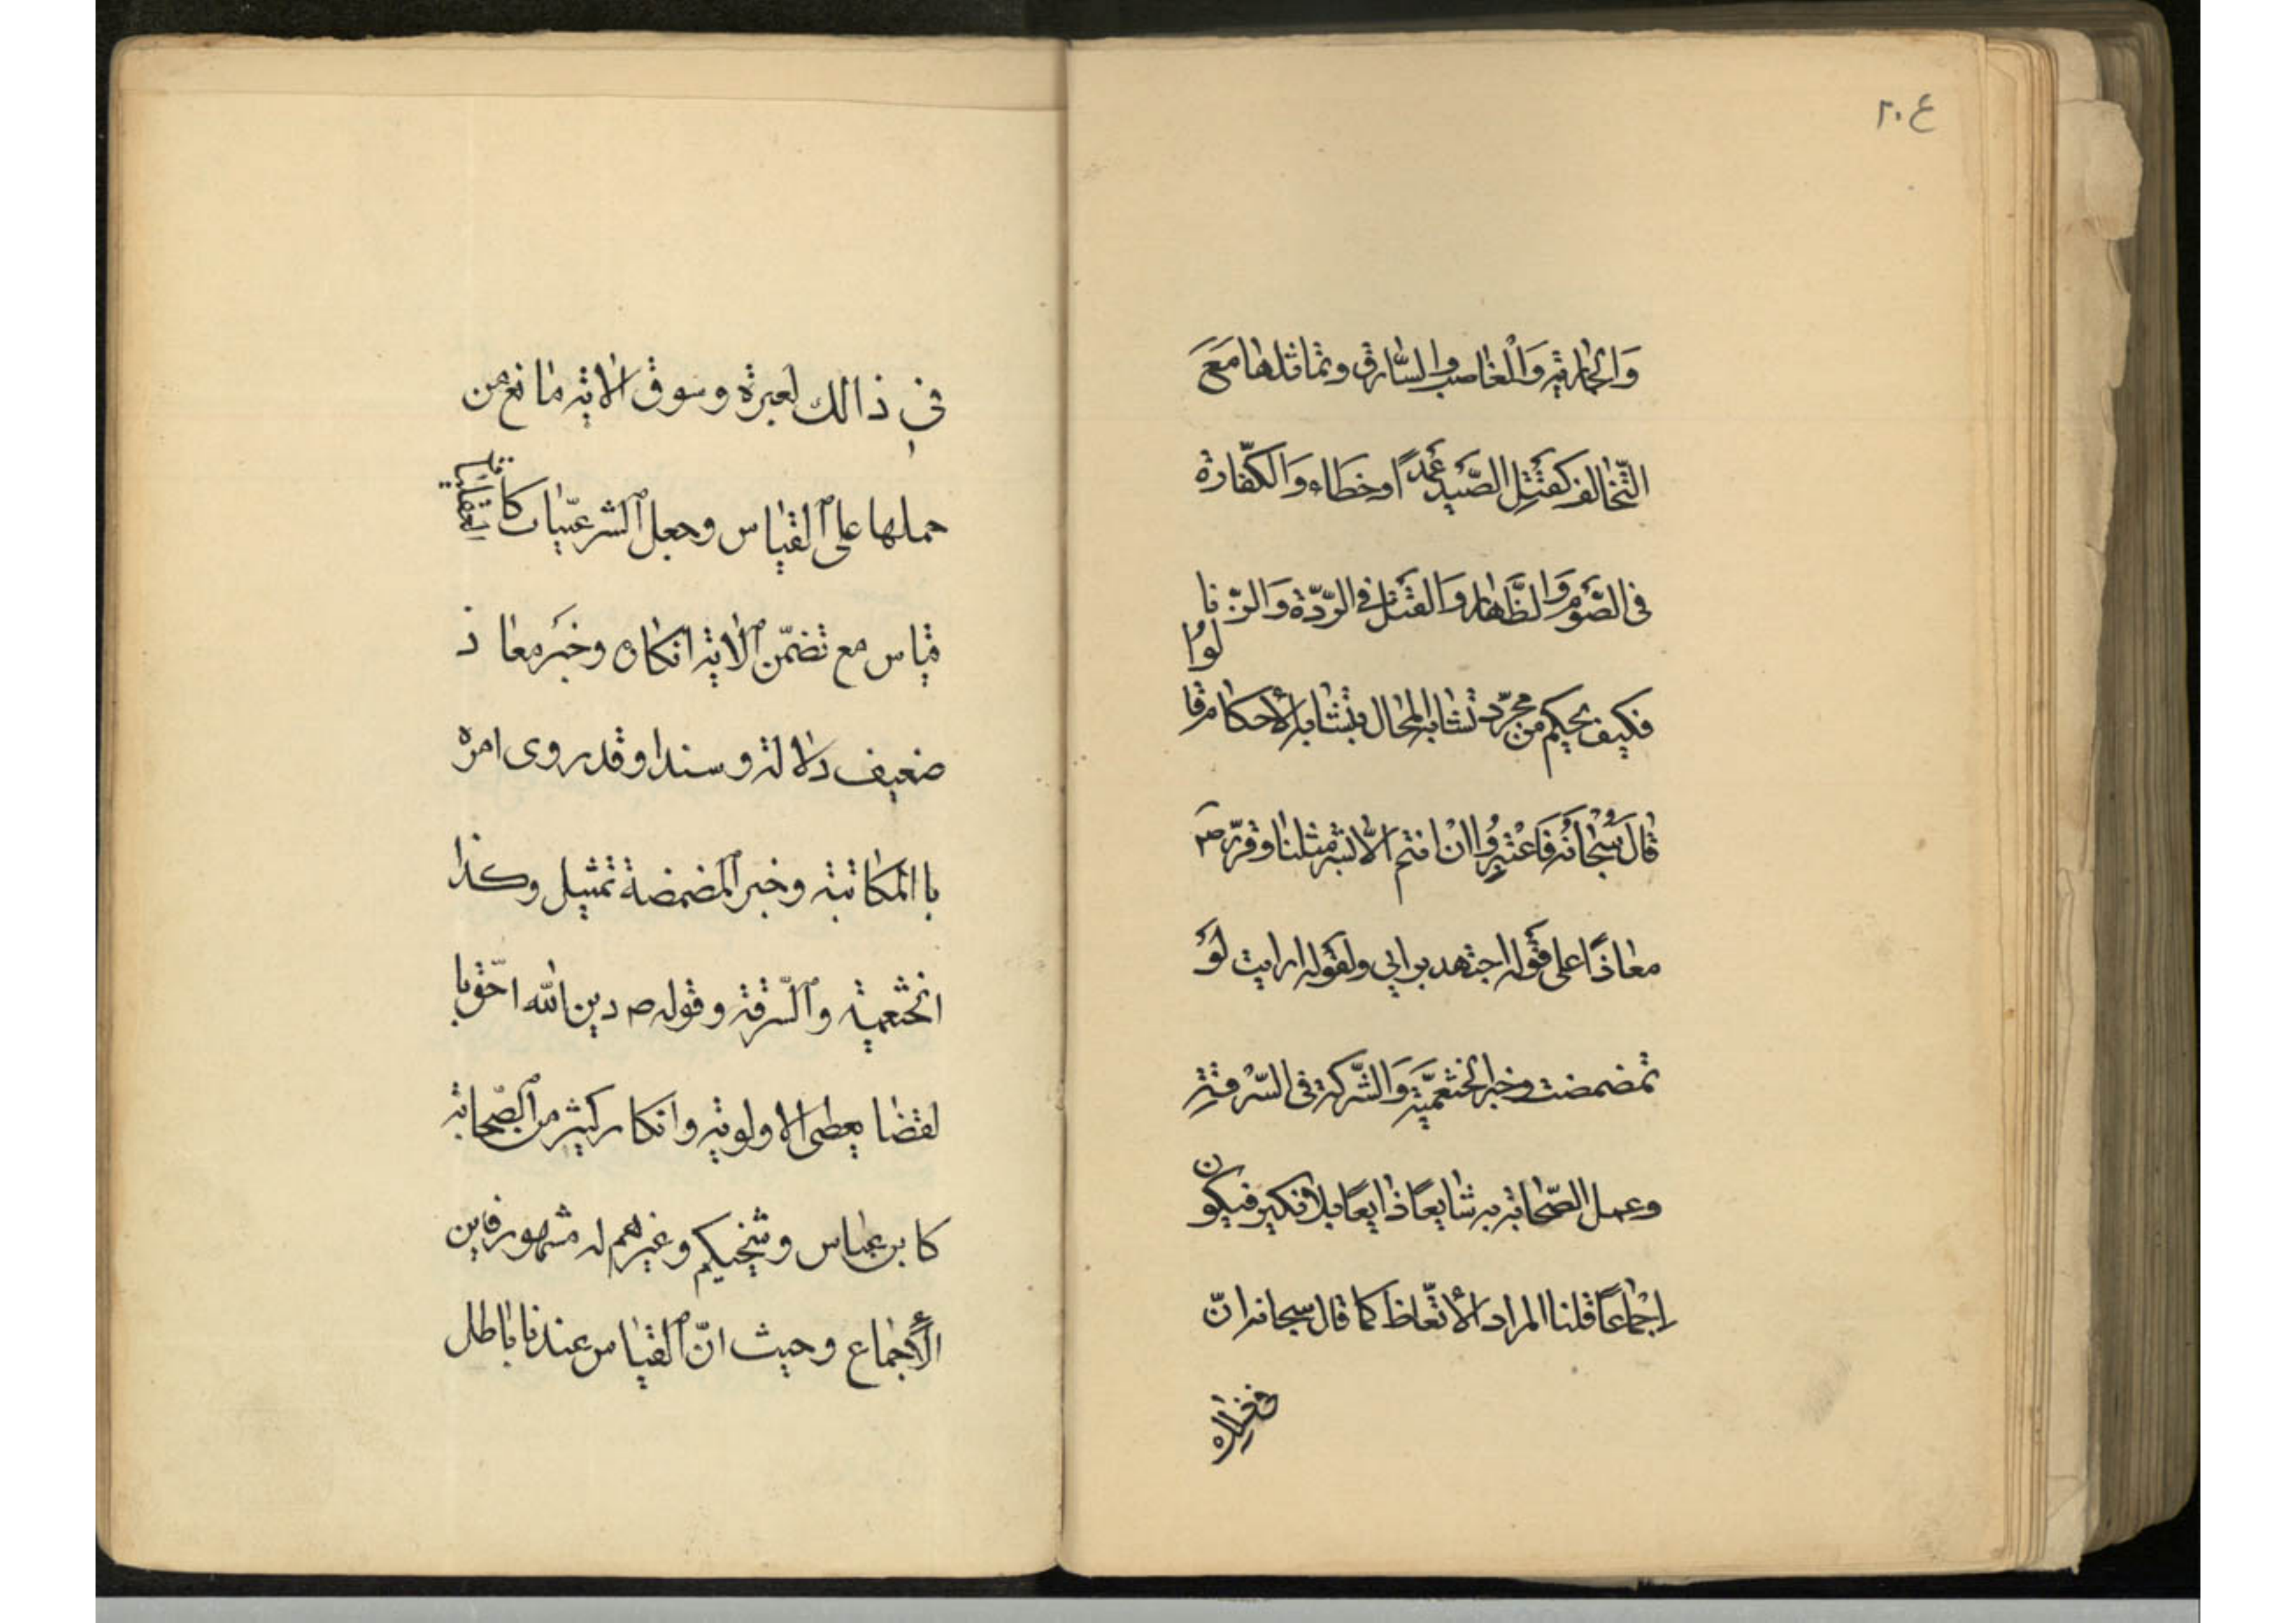 ٢٠٤
وَالجٰاريَةِ وَالْغٰاصب والسّٰارق وتماثلها مَعَ
التّخٰالف كقَتْلِ الصَّيْدِ عَمْدًا اوخطاء وَالكفّارة
فى الصَّوْم وَالظَّهٰار وَالقَتْل فى الرّدّة وَالزّنا
فكيف يحكم من مجرّد تشابه المحال بتشابه الأحكام قالوُا
قٰالَ سُبْحٰانَهُ فَاعْتَبِرُوا انْ انتم الّا بشر مثلنا وقرّر ص
معٰاذًا على قَوله اجتهد برايى ولقَوله ارايت لَوْ
تمضمضت وخبر الخثعميَّة وَالشَّركة فى السّرْقَةِ
وعمل الصّحابة به شايعًا ذٰايعًا بلا نكير فيكون
اِجْمٰاعًا قلنا المراد الأتّعاظ كما قال سبحانه انّ
في ذالك لعبرة وسوق الاية مٰانع من
حملها على القيٰاس وجعل الشرعيّات كا لعقليات
قياس مع تضمّن الٰاية انكاره وخبَر معٰاذ
ضعيف دلالة وسندا وقد روى امره
با المكاتبة وخبر المضمضة تمثيل وكذا
الخثعمية والسّرقة وقوله ص دين الله احقّ با
لقضٰا يعطى الاولوية وانكار كثير من الصّحابة
كا بن عبٰاس وشيخيكم وغيرهم له مشهور فاين
الأجماع وحيث انّ القيٰاس عندنا باطل